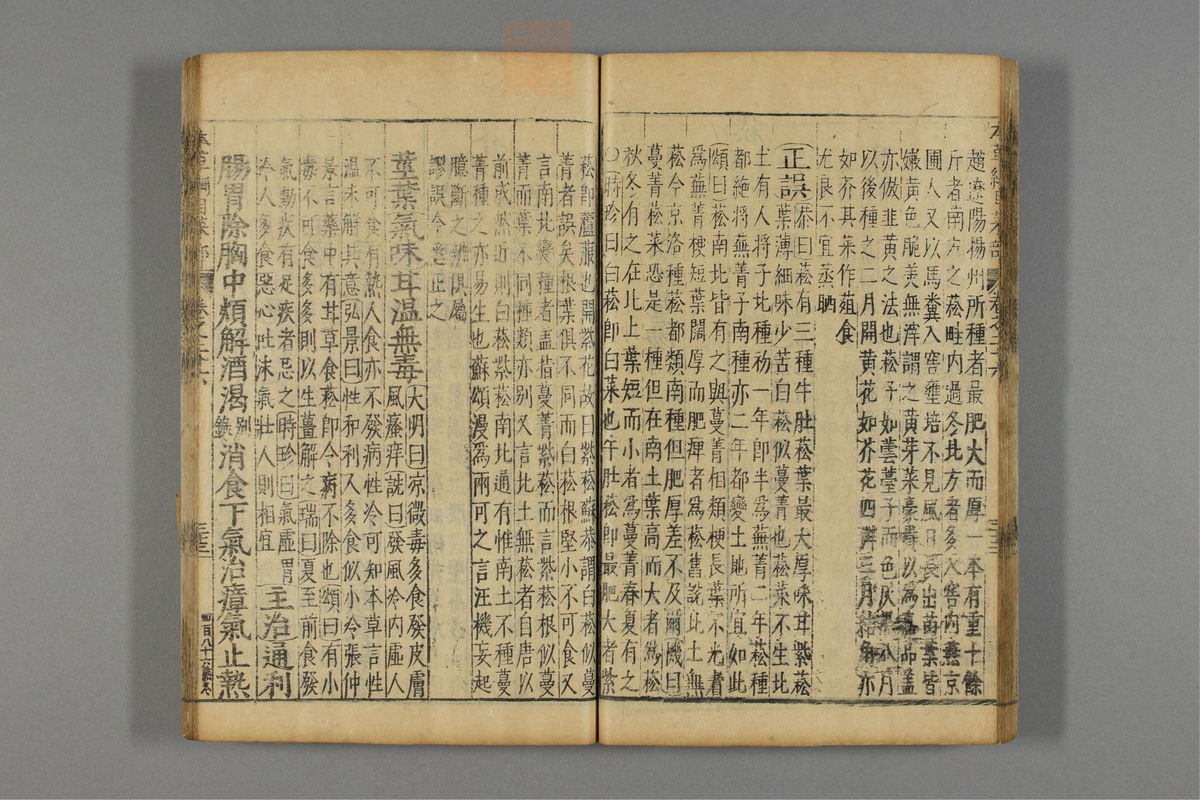 趙遼陽揚州所種者最肥大而厚一本有重十餘
斤者南方之菘畦內過冬北方者多入窖內燕京
圃人又以馬糞入窖壅培不見風日長出苗葉皆
嫩黃色脆美無滓謂之黃芽菜豪貴以爲嘉品蓋
亦倣韭黃之法也菘子如蕓薹子而色灰黑八月
以後種之二月開黃花如芥花四瓣三月結角亦
如芥其菜作葅食
尤良不宜蒸晒
正誤恭曰菘有三種牛肚菘葉最大厚味甘紫菘
葉薄細味少苦白菘似蔓菁也菘菜不生北
土有人將子北種初一年卽半爲蕪菁二年菘種
都絕將蕪菁子南種亦二年都變土地所宜如此
頌曰菘南北皆有之與蔓菁相類梗長葉不光者
爲蕪菁梗短葉闊厚而肥痺者爲菘舊說北土無
菘今京洛種菘都類南種但肥厚差不及爾機曰
蔓菁菘菜恐是一種但在南土葉高而大者爲菘
秋冬有之在北土葉短而小者爲蔓菁春夏有之
○時珍曰白菘卽白菜也牛肚菘卽最肥大者紫
菘卽蘆菔也開紫花故曰紫菘蘇恭謂白菘似蔓
菁者誤矣根葉俱不同而白菘根堅小不可食又
言南北變種者蓋指蔓菁紫菘而言紫菘根似蔓
菁而葉不同種類亦别又言北土無菘者自唐以
前或然近則白菘紫菘南北通有惟南土不種蔓
菁種之亦易生也蘇頌漫爲兩可之言汪機妄起
臆斷之辨俱屬
謬誤今悉正之
莖葉氣味甘温無毒大明曰凉微毒多食發皮膚
風瘙痒詵曰發風冷內虛人
不可食有熱人食亦不發病性冷可知本草言性
温未解其意弘景曰性和利人多食似小冷張仲
景言藥中有甘草食菘卽令病不除也頌曰有小
毒不可食多多則以生薑解之瑞曰夏至前食發
氣動疾有足疾者忌之時珍曰氣虛胃
冷人多食惡心吐沫氣壯人則相宜
主治通利
腸胃除胸中煩解酒渴别錄消食下氣治瘴氣止熱